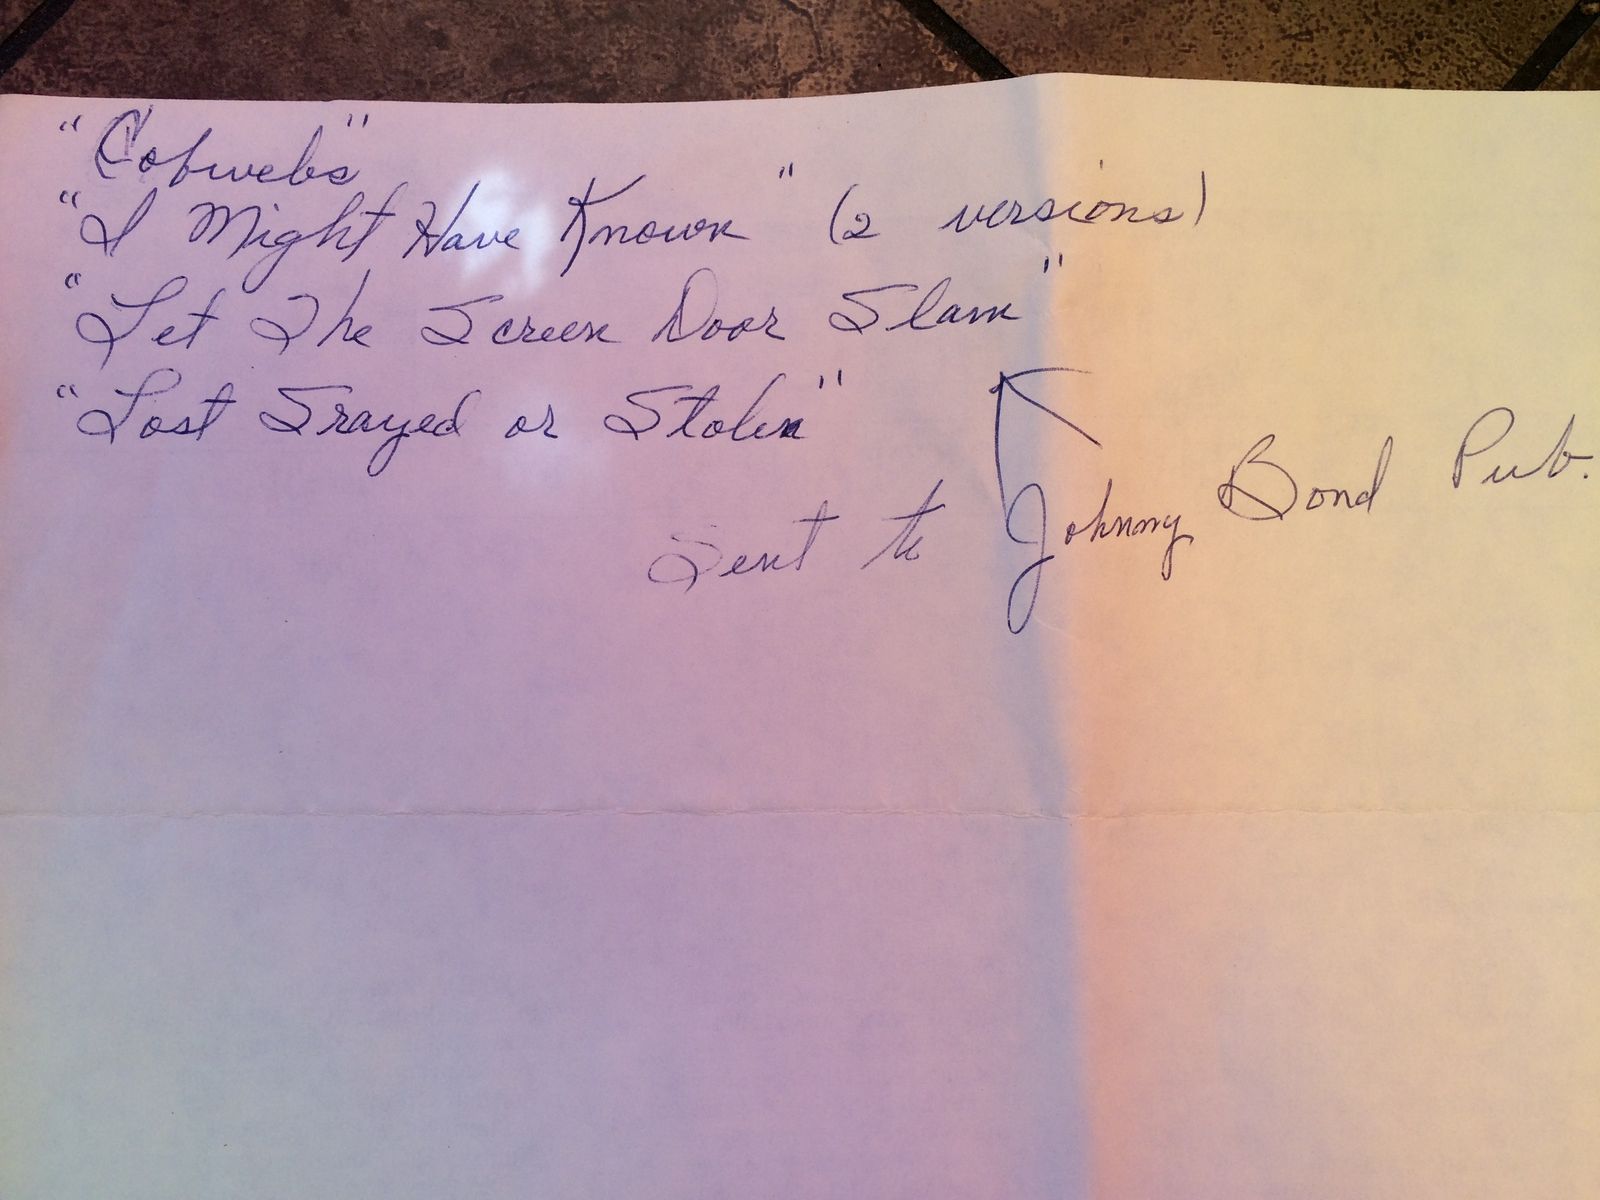 "Cobwebs"
"I Might Have Known" (2 versions)
"Let The Screen Door Slam"
"Lost Srayed or Stolen"
Sent to Johnny Bond Pub.